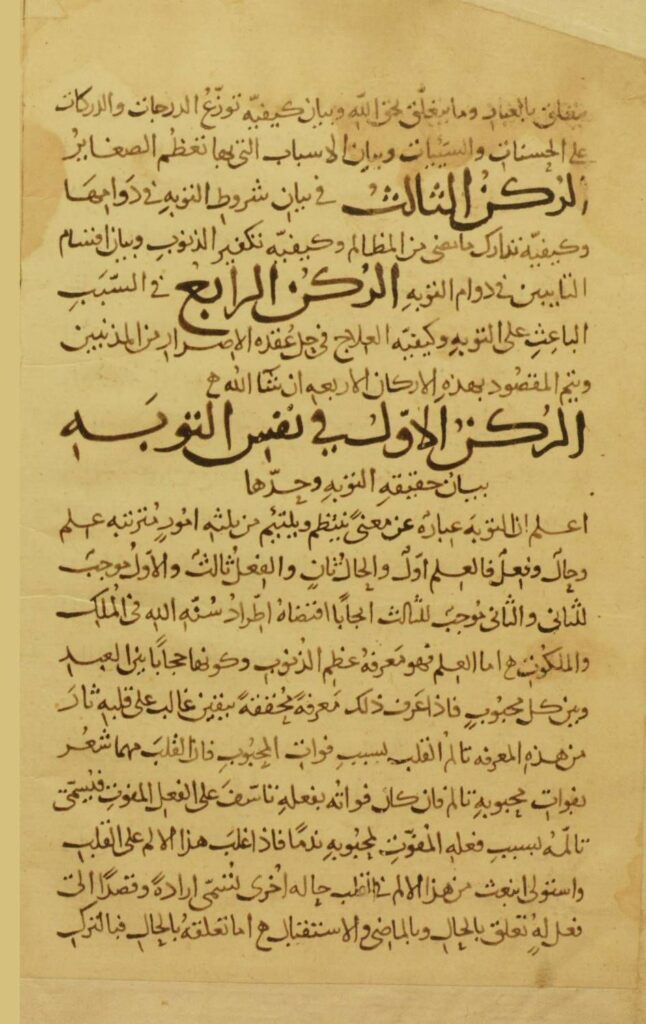 يتعلق بالعباد وما يتعلق بحق الله وبيان كيفيه توزّع الدرجات والدركات
على الحسنات والسيئات وبيان الاسباب التى بها تعظم الصغاير
الركن الثالث في بيان شروط التوبه في دوامها
وكيفيه تدارك ما مضى من المظالم وكيفيه تكفير الذنوب وبيان اقسام
التايبين في دوام التوبه الركن الرابع في السّبب
الباعث على التوبه وكيفيه العلاج في حل عقده الاصرار من المذنبين
ويتم المقصود بهذه الاركان الاربعه ان شا الله ه
الركن الاوّل في نفس التوبه
بيان حقيقه التوبه وحدّها
اعلم ان التوبه عبارة عن معنىً ينتظم ويلتئم من ثلثه امور مترتبه علم
وحال وفعل فالعلم اوّل والحال ثانٍ والفعل ثالث والاوّل موجب
للثاني والثاني موجب للثالث ايجابا اقتضاه اطّراد سنّه الله في الملك
والملكوت ه اما العلم فهو معرفه عظم الذنوب وكونها حجابا بين العبد
وبين كل محبوب فاذا عرف ذلك معرفة محققة بيقين غالب على قلبه ثار
من هذه المعرفه تالم القلب بسبب فوات المحبوب فان القلب مهما شعر
بفوات محبوبه تالم فان كان فواته بفعله تاسّف على الفعل المفوت فيسمّى
تالمه بسبب فعله المفوّت لمحبوبه ندما فاذا غلب هذا الالم على القلب
واستولى انبعث من هذا الالم في القلب حاله اخرى تسمّى ارادة وقصدًا الى
فعل له تعلق بالحال وبالماضي والاستقبال ه اما تعلقه بالحال فبالترك